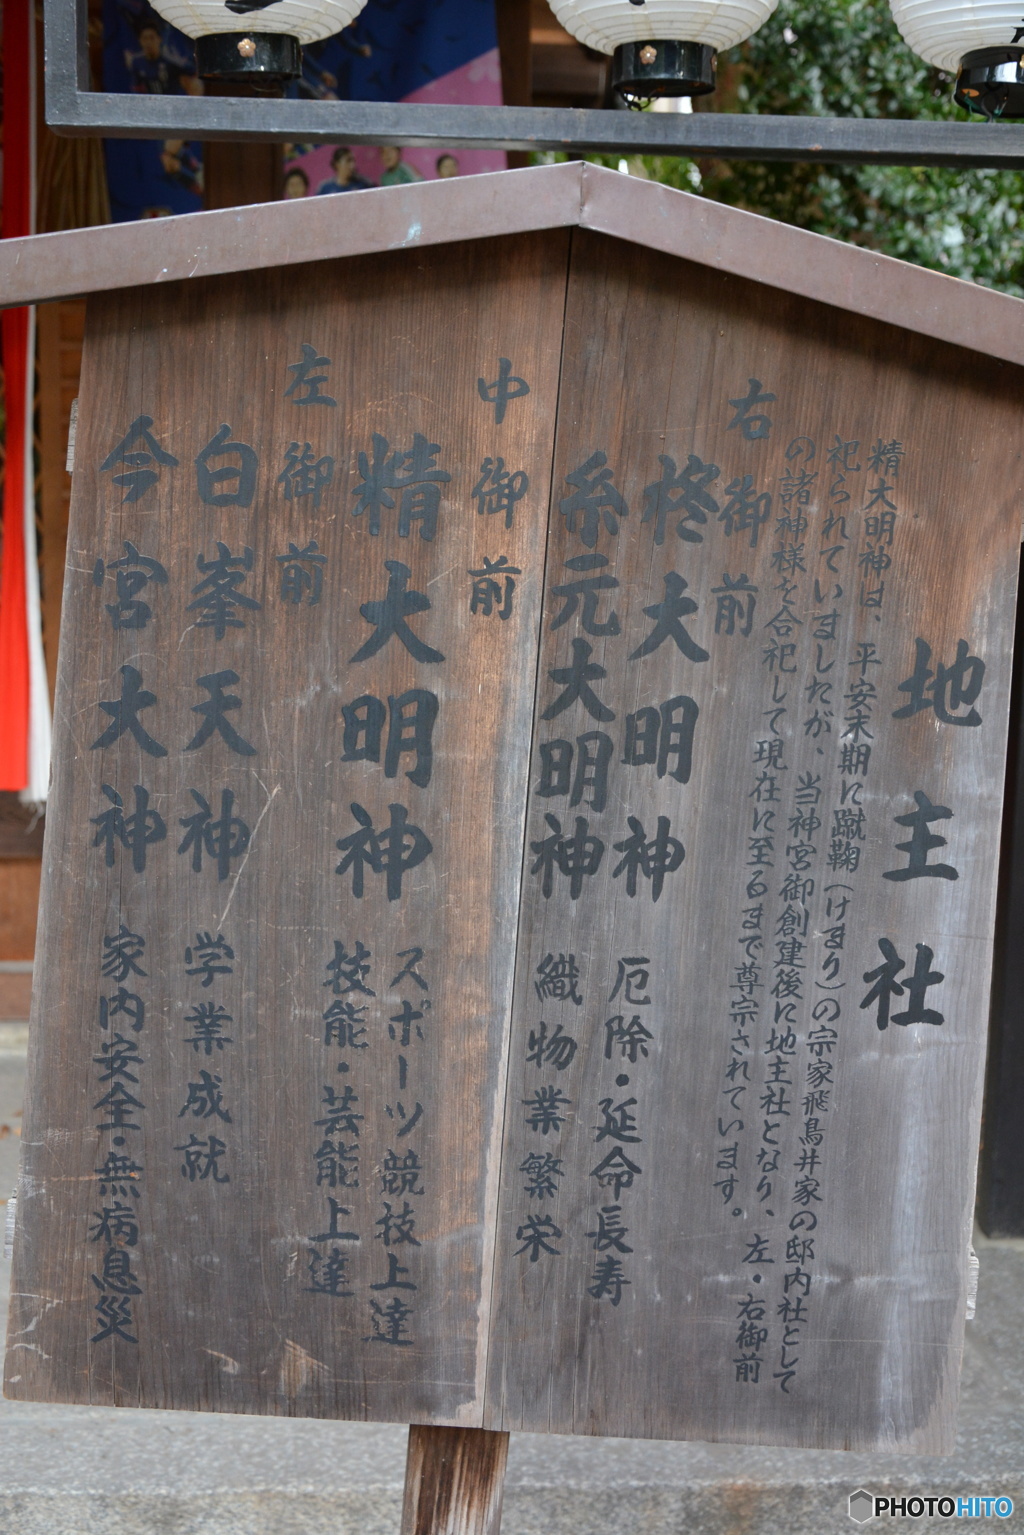 地主社
精大明神は、平安末期に蹴鞠(けまり)の宗家飛鳥井家の邸内社として
祀られていましたが、当神宮御創建後に地主社となり、左・右御前
の諸神様を合祀して現在に至るまで尊崇されています。
右御前
柊大明神 厄除・延命長寿
糸元大明神 織物業繁栄
中御前
精大明神 スポーツ競技上達
技能・芸能上達
左御前
白峯天神 学業成就
今宮大神 家内安全・無病息災
PHOTOHITO